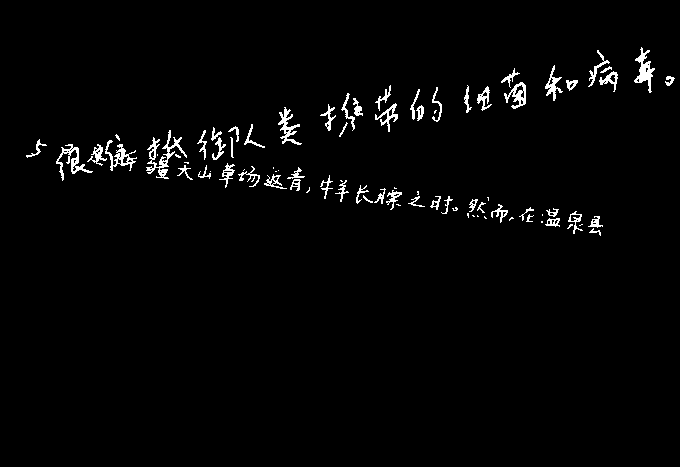 很难抵御人类携带的细菌和病毒。
疆天山草场返青,牛羊长膘之时。然而,在温泉县